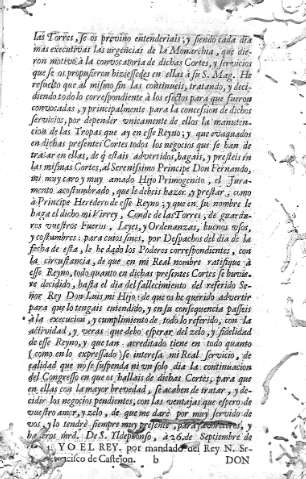 las Torres, se os previno entenderiais; y siendo cada dia
mas executivas las urgencias de la Monarchia, que die-
ron motivo à la convocatoria de dichas Cortes, y servicios
que se os propusieron hiziessedes en ellas à su S. Mag. He
resuelto que al mismo fin las continueis, tratando, y deci-
diendo todo lo correspondiente à los efectos para que fueron
convocadas, y principalmente para la concession de dichos
servicios, por depender unicamente de ellos la manuten-
cion de las Tropas que ay en esse Reyno; y que evaquados
en dichas presentes Cortes todos los negocios que se han de
tratar en ellas, de q̃ estais advertidos, hagais, y presteis en
las mismas Cortes, al Serenissimo Principe Don Fernando,
mi muy caro y muy amado Hijo Primogenito, el Jura-
mento acostumbrado, que le debeis hazer, y prestar, como
à Principe Heredero de esse Reyno; y que en su nombre le
haga el dicho mi Virrey, Conde de las Torres, de guarda-
ros vuestros Fueros, Leyes, y Ordenanzas, buenos usos,
y costumbres: para cuyos fines, por Despachos del dia de la
fecha de esta, le he dado los Poderes correspondientes, con
la circunstancia, de que en mi Real nombre ratifique à
esse Reyno, todo quanto en dichas presentes Cortes se huvie-
re decidido, hasta el dia del fallecimiento del referido Se-
ñor Rey Don Luis mi Hijo: de que os he querido advertir
para que lo tengais entendido, y en su consequencia passeis
à la execucion, y cumplimiento de todo lo referido, con la
actividad, y veras que debo esperar del zelo, y fidelidad
de esse Reyno, y que tan acreditado tiene en todo quanto
(como en lo expressado) se interesa mi Real servicio, de
calidad que no se suspenda ni un solo dia la continuacion
del Congresso en que os hallais de dichas Cortes, para que
en ellas con la mayor brevedad, se acaben de tratar, y de-
cidir los negocios pendientes, con las ventajas que espero de
vuestro amor, y zelo, de que me daré por muy servido de
vos, y lo tendrè siempre muy presente, para favoreceros, y
hazeros mrd. De S. Ildephonso, à 26. de Septiembre de
YO EL REY. por mandado del Rey N. Sr
Francisco de Castejon. b DON